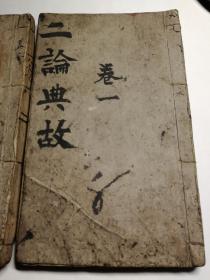 二論典故
卷一